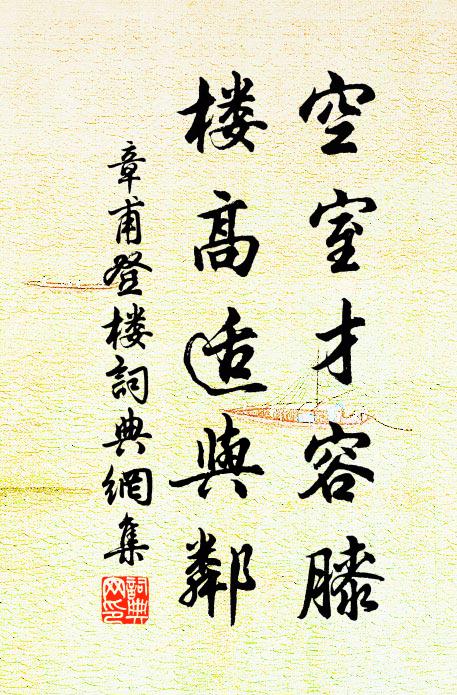 空室才容膝
楼高适與鄰
章甫登楼詞典網集
詞典网印